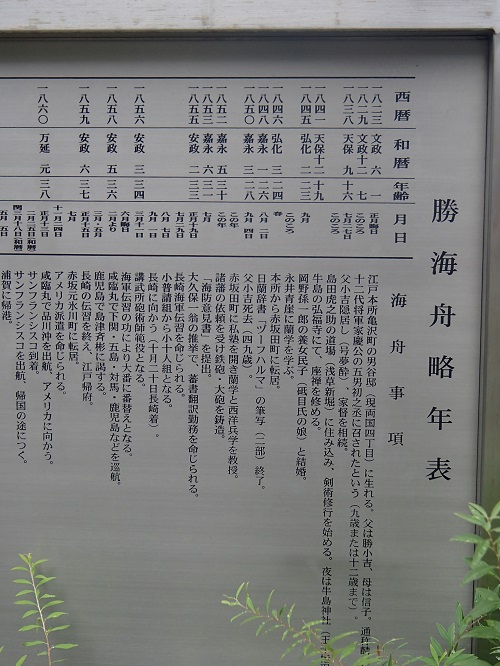 勝海舟略年表
西暦 和暦 年齢 月日 海舟事項
一八二三 文政 六 一 正月晦日 江戸本所亀沢町の男谷邸(現両国四丁目)に生れる。父は勝小吉、母は信子。通称麟
一八二九 文政十二 七 このころ 十二代将軍家慶公の五男初之丞に召されたという(九歳または十二歳まで)。
一八三八 天保 九 十六 父小吉隠居し(号夢酔)、家督を相続。
一八四一 天保十二 十九 このころ 島田虎之助の道場(浅草新堀)に住み込み、剣術修行を始める。夜は牛島神社(王
牛島の弘福寺にて、座禅を修める。
一八四五 弘化 二 二三 九月 岡野孫一郎の養女民子(砥目氏の娘)と結婚。
このころ 永井青崖に蘭学を学ぶ。
一八四六 弘化 三 二四 春 本所から赤坂田町に転居。
一八四八 嘉永 一 二六 八月二日 日蘭辞書「ヅーフハルマ」の筆写(二部)終了。
一八五〇 嘉永 三 二八 九月四日 父小吉死去(四九歳)。
この年 赤坂田町に私塾を開き蘭学と西洋兵学を教授。
一八五二 嘉永 五 三十 この年 諸藩の依頼を受け鉄砲・大砲を鋳造。
一八五三 嘉永 六 三一 七月 「海防意見書」を提出。
一八五五 安政 二 三三 大久保一翁の推挙で、蕃書翻訳勤務を命じられる。
七月二九日 長崎海軍伝習を命じられる。
小普請組から小十人組となる。
九月一日 長崎に向かう(十月二十日長崎着)。
一八五六 安政 三 三四 三月十一日 講武所砲術師範役となる。
六月晦日 海軍伝習の功により大番に番替えとなる。
一八五八 安政 五 三六 咸臨丸で下関・五島・対馬・鹿児島などを巡航。
鹿児島で島津斉彬に謁する。
一八五九 安政 六 三七 長崎の伝習を終え、江戸帰府。
七月 赤坂元氷川町に転居。
アメリカ派遣を命じられる。
一八六〇 万延 元 三八 咸臨丸で品川沖を出航、アメリカに向かう。
サンフランシスコ到着。
サンフランシスコを出航、帰国の途につく。
五月五日 浦賀に帰港。